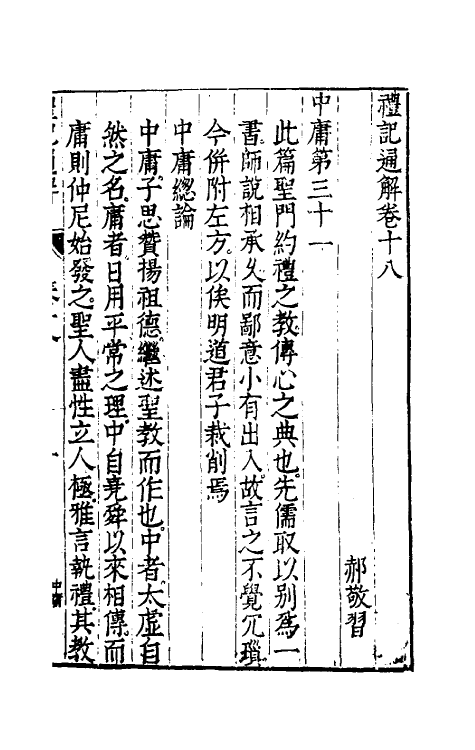 禮記通解卷十八
郝敬習
中庸第三十一
此篇聖門約禮之教傳心之典也先儒取以別爲一
書師說相承久而鄙意小有出入故言之不覺冗瑣
今併附左方以俟明道君子裁削焉
中庸總論
中庸子思贊揚祖德繼述聖教而作也中者太虛自
然之名庸者日用平常之理中自堯舜以來相傳而
庸則仲尼始發之聖人盡性立人極雅言執禮其教
中庸